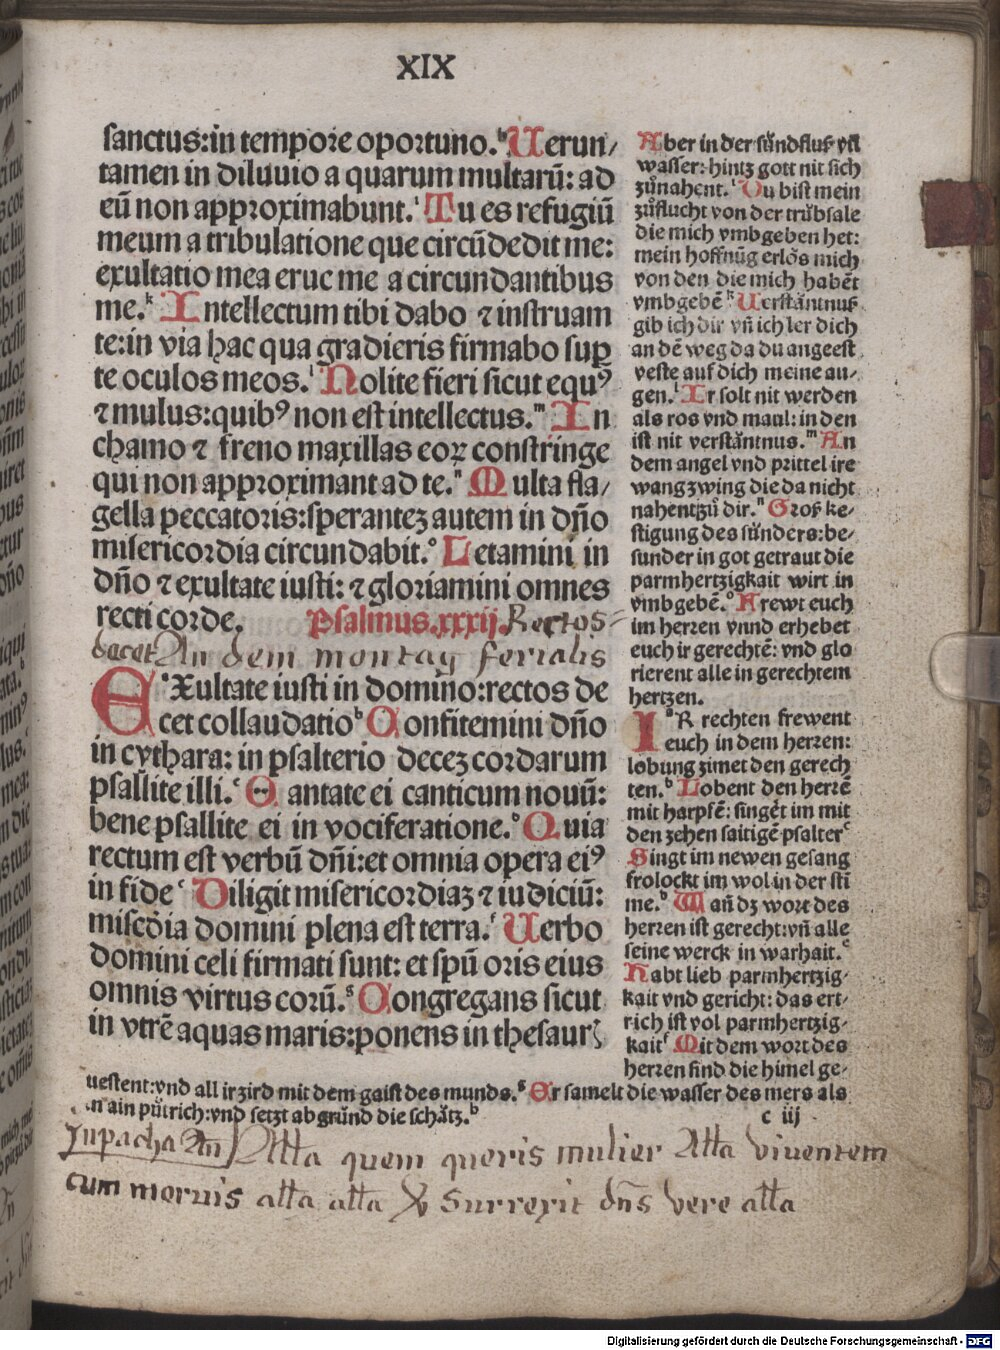 XIX
sanctus:in tempore oportuno.ʰ Uerun/
tamen in diluuio a quarum multarū: ad
eū non approximabunt.ⁱ Tu es refugiū
meum a tribulatione que circūdedit me:
exultatio mea erue me a circundantibus
me.ᵏ Intellectum tibi dabo ⁊ instruam
te:in via hac qua gradieris firmabo suꝑ
te oculos meos.ˡ Nolite fieri sicut equꝰ
⁊ mulus:quibꝰ non est intellectus.ᵐ In
chamo ⁊ freno maxillas eoꝝ constringe
qui non approximant ad te.ⁿ Multa fla/
gella peccatoris:sperantez autem in dño
misericordia circundabit.ᵒ Letamini in
dño ⁊ exultate iusti: ⁊ gloriamini omnes
recti corde. Psalmus.xxxij. Rectos
decet An dem montag ferialis
EXultate iusti in domino:rectos de
cet collaudatioᵇ Confitemini dño
in cythara: in psalterio decez cordarum
psallite illi.ᶜ Cantate ei canticum nouū:
bene psallite ei in vociferatione.ᵈ Quia
rectum est verbū dñi:et omnia opera eiꝰ
in fideᵉ Diligit misericordiaz ⁊ iudiciū:
miscdia domini plena est terra.ᶠ Uerbo
domini celi firmati sunt: et spū oris eius
omnis virtus eorū.ᵍ Congregans sicut
in vtrē aquas maris:ponens in thesaur
Aber in der sündfluß vil
wasser: hintz gott nit sich
zůnahent.ⁱ Du bist mein
zůflucht von der trübsale
die mich vmbgeben het:
mein hoffnūg erlös mich
von den die mich habēt
vmbgebēᵏ Uerstäntnuß
gib ich dir vñ ich ler dich
an dē weg da du angeest
veste auf dich meine au-
gen.ˡ Ir solt nit werden
als ros vnd maul: in den
ist nit verstäntnus.ᵐ An
dem angel vnd prittel ire
wang zwing die da nicht
nahent zů dir.ⁿ Groß ke-
stigung des sünders:be-
sunder in got getraut die
parmhertzigkait wirt in
vmbgebē.ᵒ Frewt euch
im herren vnnd erhebet
euch ir gerechtē: vnd glo
rierent alle in gerechtem
hertzen.
IR rechten frewent
euch in dem herren:
lobung zimet den gerech
ten.ᵇ Lobent den herrē
mit harpfē: singēt im mit
den zehen saitigē psalterᶜ
Singt im newen gesang
frolockt im wol in der sti
me.ᵈ Wañ dz wort des
herren ist gerecht:vñ alle
seine werck in warhait.ᵉ
Habt lieb parmhertzig-
kait vnd gericht: das ert-
rich ist vol parmhertzig-
kaitᶠ Mit dem wort des
herren sind die himel ge-
uestent:vnd all ir zird mit dem gaist des munds.ᵍ Er samelt die wasser des mers als
in ain pütrich:vnd setzt abgründ die schätz.ʰ
c iij
Inpacha An Alla quem queris mulier Alla viuentem
cum mortuis alla alla Surrexit dñs vere alla